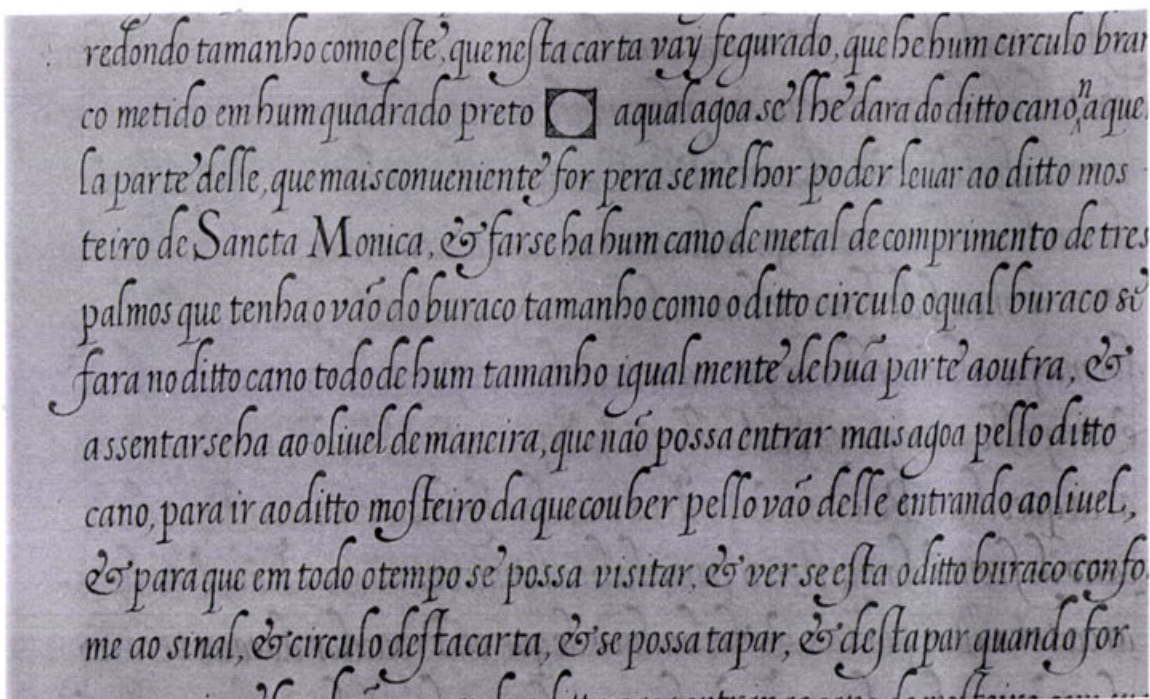 redondo tamanho como este, que nesta carta vay fegurado, que he hum circulo bran
co metido em hum quadrado preto a qual agoa se lhe dara do ditto cano, n a que
la parte delle, que mais conueniente for pera se melhor poder leuar ao ditto mos
teiro de Sancta Monica, & farseha hum cano de metal de comprimento de tres
palmos que tenha o vão do buraco tamanho como o ditto circulo o qual buraco se
fara no ditto cano todo de hum tamanho igual mente de huã parte a outra, &
assentarseha ao oliuel de maneira, que não possa entrar mais agoa pello ditto
cano, para ir ao ditto mosteiro da que couber pello vão delle entrando ao liuel,
& para que em todo o tempo se possa visitar, & ver se esta o ditto buraco confo
me ao sinal, & circulo desta carta, & se possa tapar, & destapar quando for